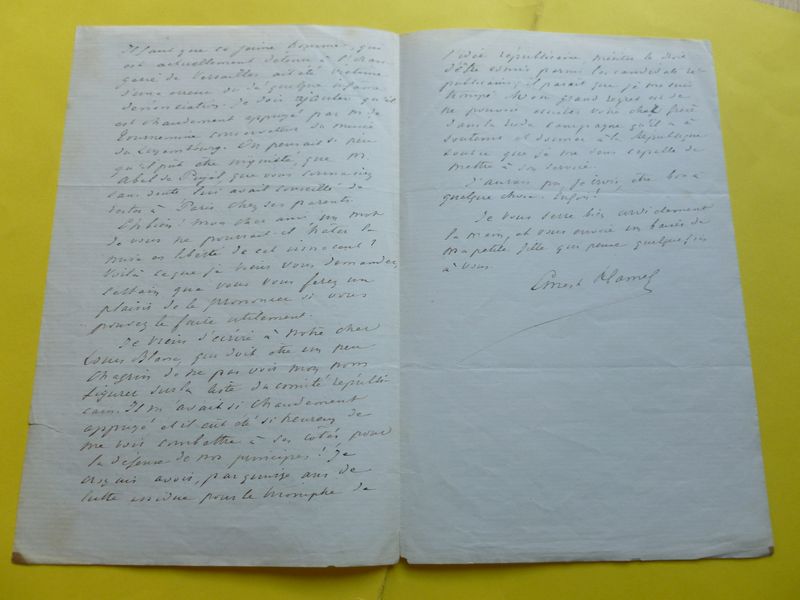 Il faut que ce jeune homme, qui
est actuellement détenu à l'Oran-
gerie de Versailles ait été victime
d'une erreur ou de quelque infâme
dénonciation. Je dois ajouter qu'il
est chaudement appuyé par M. de
Tournemine conservateur du musée
du Luxembourg. On pensait si peu
qu'il pût être inquiété, que M.
Abel de Pujol que vous connaissez
sans doute lui avait conseillé de
rester à Paris, chez ses parents.
Eh bien! mon cher ami, un mot
de vous ne pourrait-il hâter la
mise en liberté de cet innocent?
Voilà ce que je viens vous demander,
certain que vous vous ferez un
plaisir de le prononcer si vous
pouvez le faire utilement.
Je viens d'écrire à notre cher
Louis Blanc, qui doit être un peu
chagrin de ne pas voir mon nom
figurer sur la liste du comité républi-
cain. Il m'avait si chaudement
appuyé et il eut été si heureux de
me voir combattre à ses côtés pour
la défense de nos principes! Je
croyais avoir, par quinze ans de
lutte assidue pour le triomphe de
l'idée républicaine, mériter le droit
d'être admis parmi les candidats ré-
publicains; il paraît que je me suis
trompé. Mon grand regret est de
ne pouvoir assister votre cher frère
dans la rude campagne qu'il a à
soutenir et donner à la République
tout ce que je me sens capable de
mettre à son service.
J'aurais pu, je crois, être bon à
quelque chose. Enfin!
Je vous serre bien cordialement
la main, et vous envoie un baiser de
ma petite fille qui pense quelquefois
à vous
Ernest Hamel